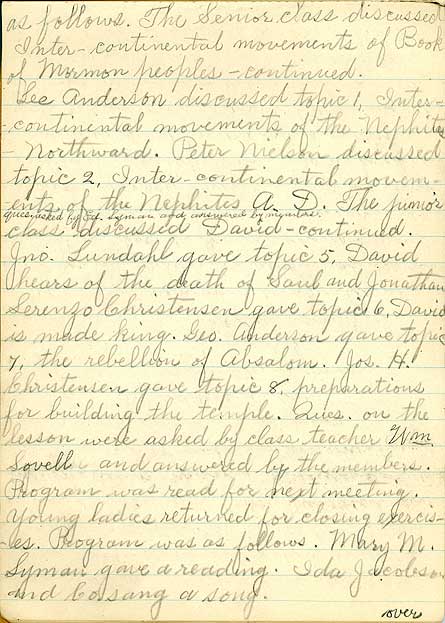 as follows. The Senior class discussed
Inter-continental movements of Book
of Mormon peoples - continued.
Geo Anderson discussed topic 1, Inter-
continental movements of the Nephites
- Northward. Peter Nielson discussed
topic 2, Inter-continental movem-
ents of the Nephites A. D. The junior
ques. asked by Ed. Lyman and answered by members.
class discussed David - continued.
Jno. Lundahl gave topic 5, David
hears of the death of Saul and Jonathan
Serenzo Christensen gave topic 6, David
is made king. Geo. Anderson gave topic
7, the rebellion of Absalom. Jos. H.
Christensen gave topic 8, preparations
for building the temple. Ques. on the
lesson were asked by class teacher Wm
Lovell and answered by the members.
Program was read for next meeting.
Young ladies returned for closing exercis-
es. Program was as follows. Mary M.
Lyman gave a reading. Ida Jacobson
and Co sang a song.
over